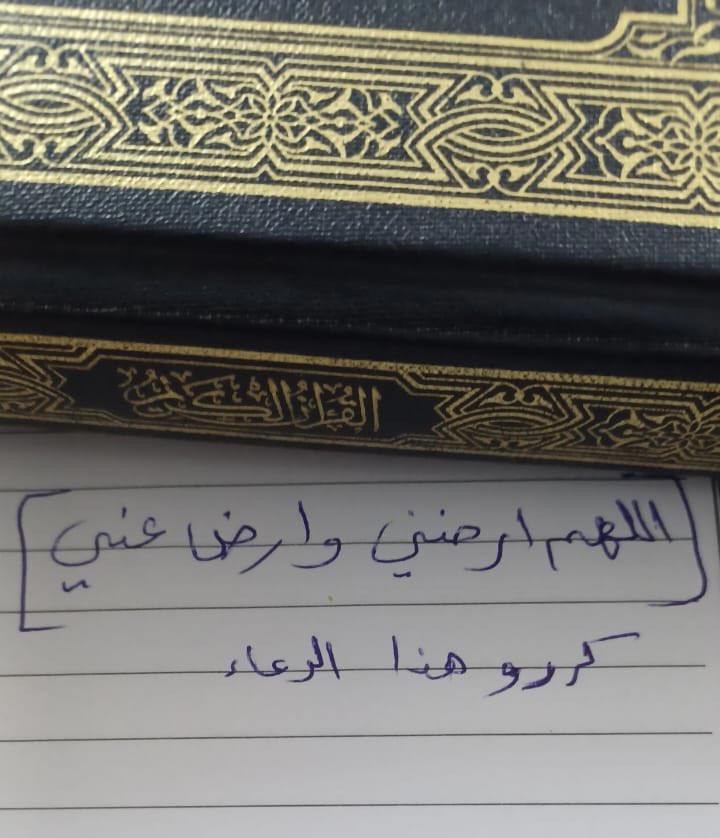 القرآن الكريم
[اللهم ارضني وارض عني]
كررو هذا الدعاء